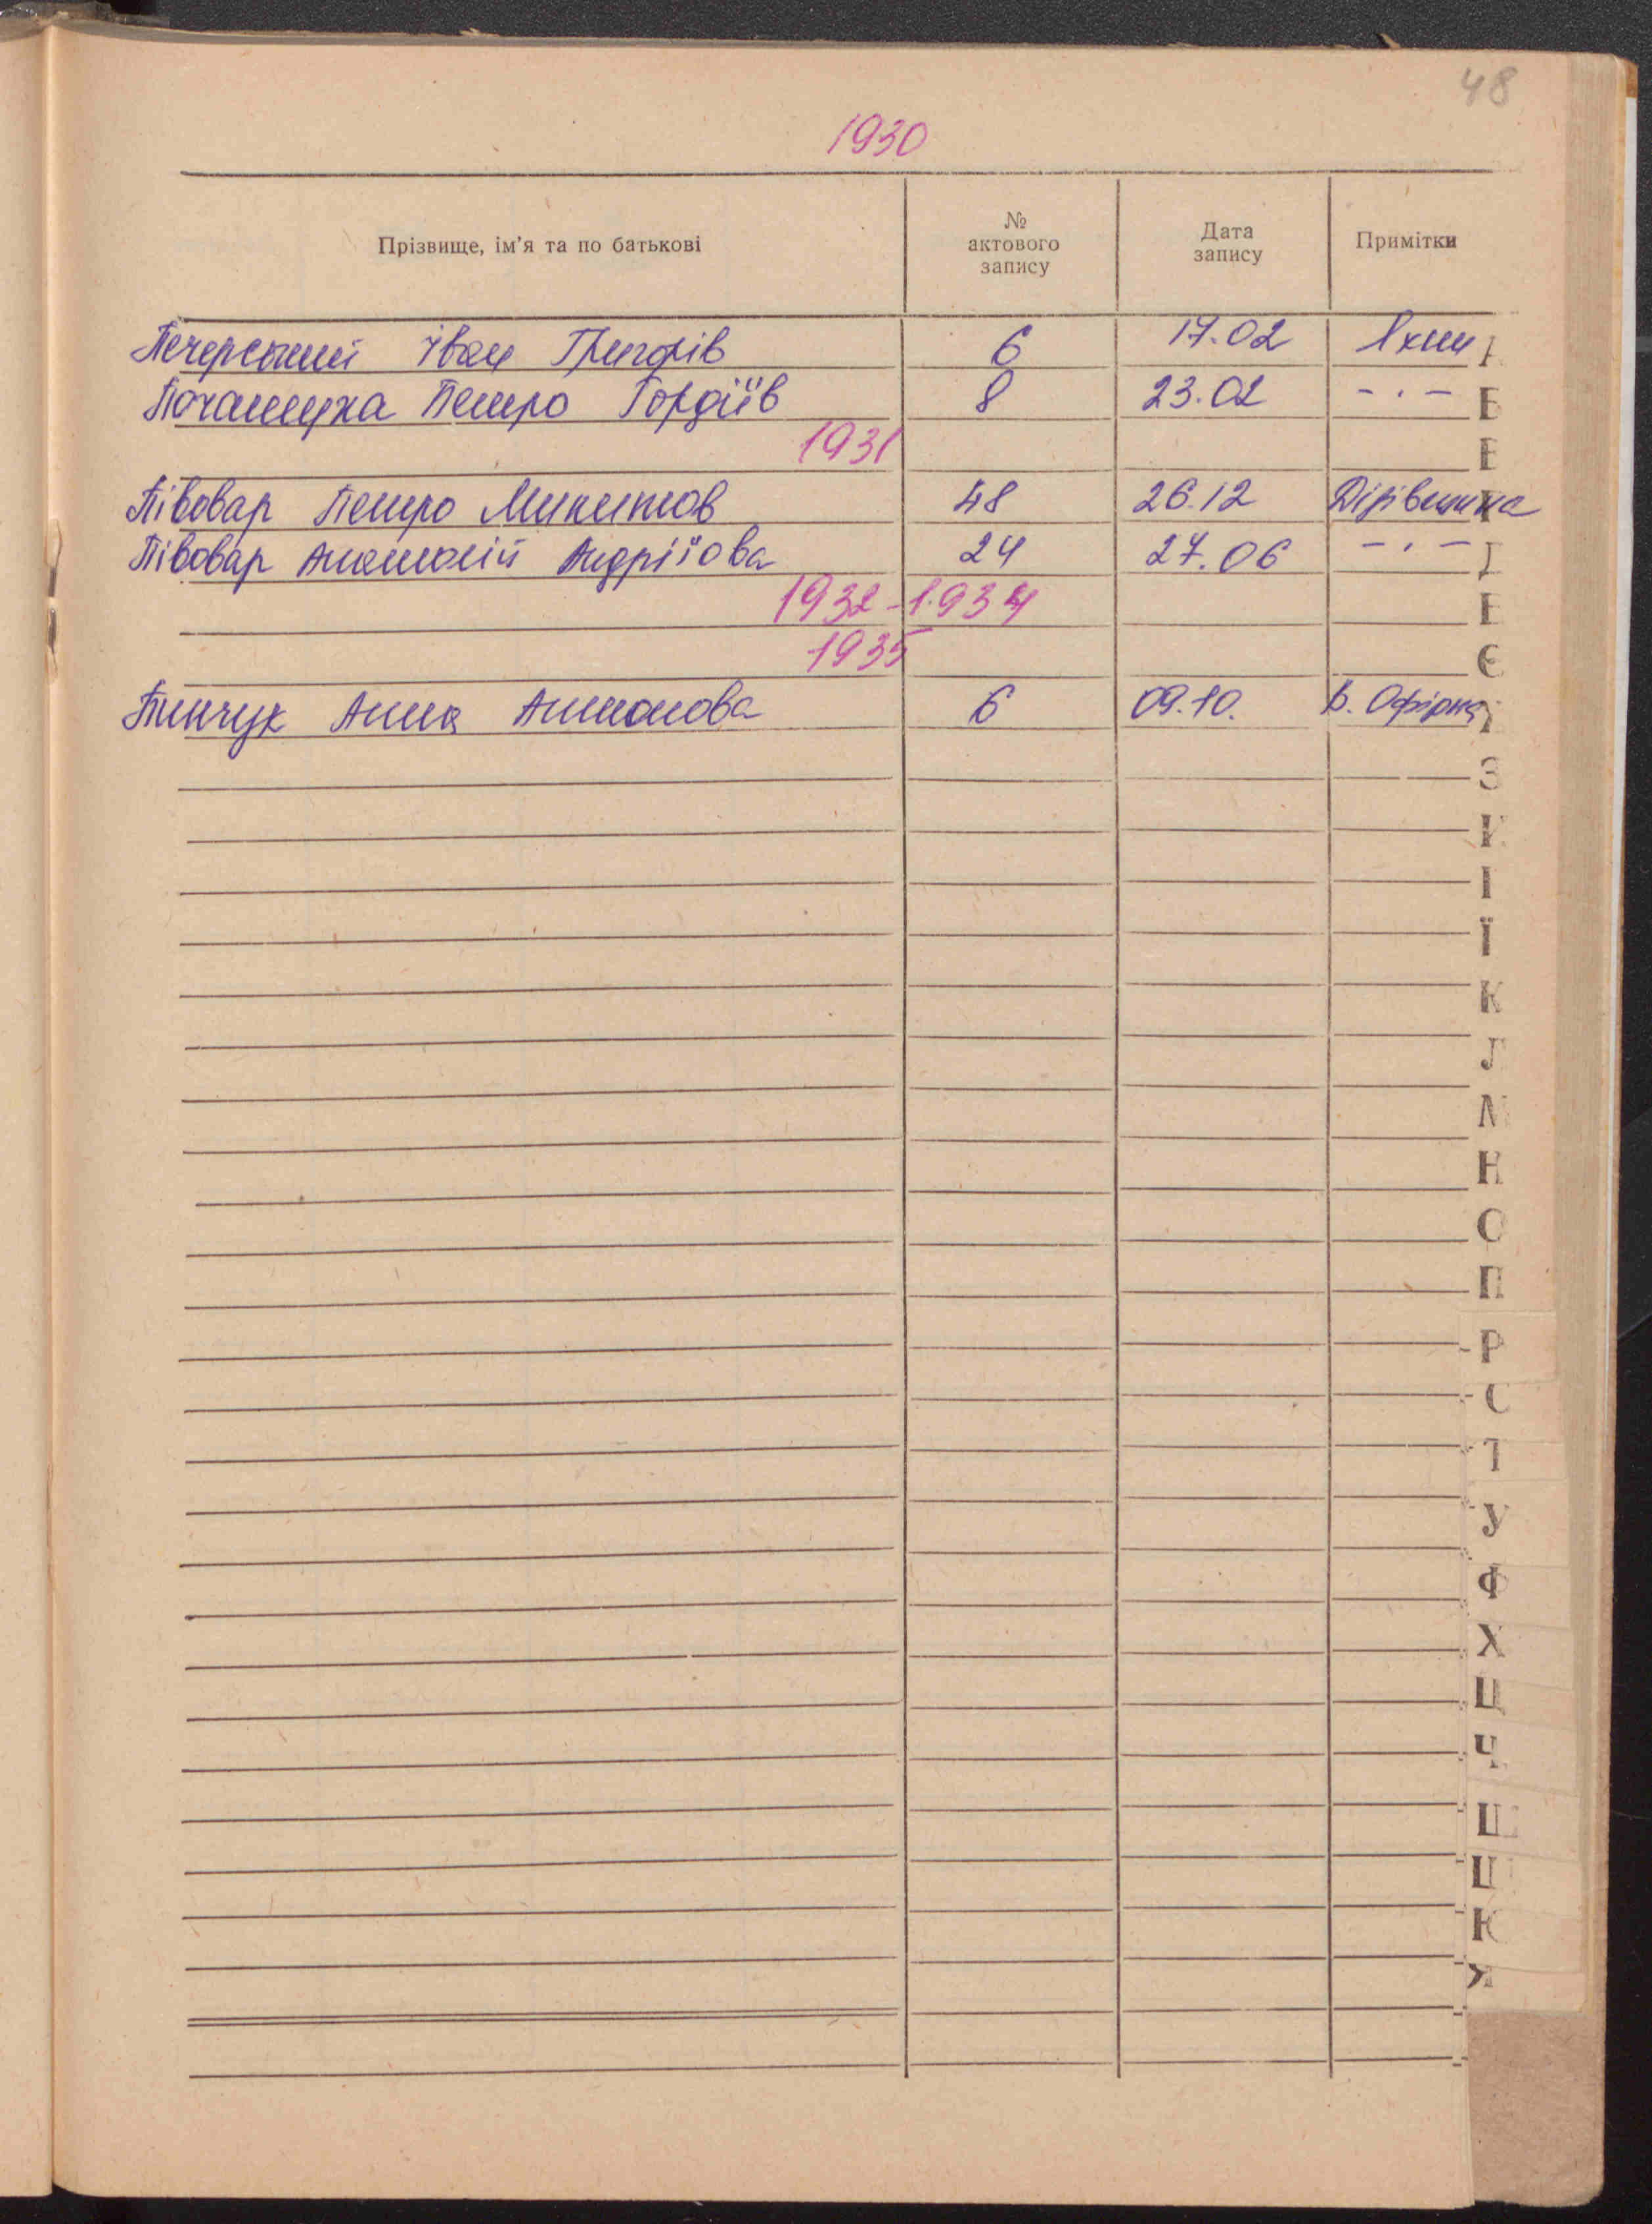 48
1930
Прізвище, ім'я та по батькові № актового запису Дата запису Примітки
Печерський Іван Григорів 6 17.02 Яхни
Початуха Петро Гордіїв 8 23.02 - . -
1931
Півовар Петро Микитов 48 26.12 Дідівщина
Півовар Анатолій Андріїова 24 27.06 - . -
1932-1934
1935
Пинчук Анна Антонова 6 09.10. В. Офірна
А
Б
В
Г
Д
Е
Є
Ж
З
И
І
Ї
К
Л
М
Н
О
П
Р
С
Т
У
Ф
Х
Ц
Ч
Ш
Щ
Ю
Я